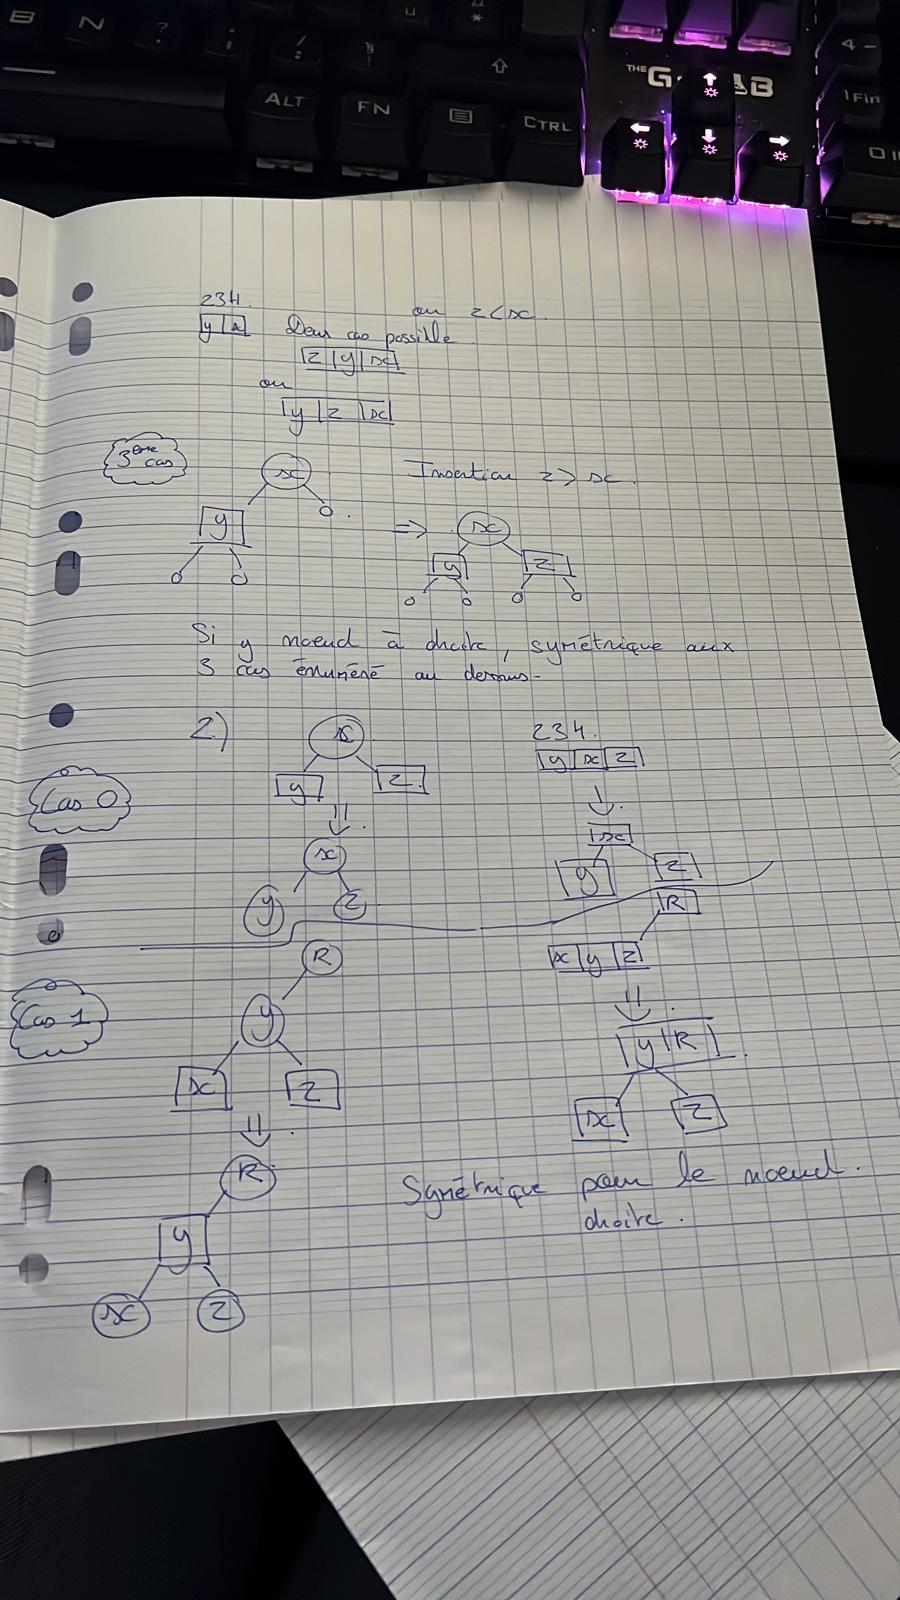 ALT
FN
CTRL
THE G-LAB
1 Fin
234.
ou z<x.
y x Deux cas possible
z|y|x
ou
y|z|x
3ème cas
x
Insertion z > x.
y
=> x
y z
Si y noeud à droite, symétrique aux
3 cas énuméré au dessus.
2)
x
234.
y|x|z
y z
Cas 0
x
x
y z
y z
R
R
x|y|z
Cas 1
y
y|R
x z
x z
R
Symétrique pour le noeud
droite.
y
x z